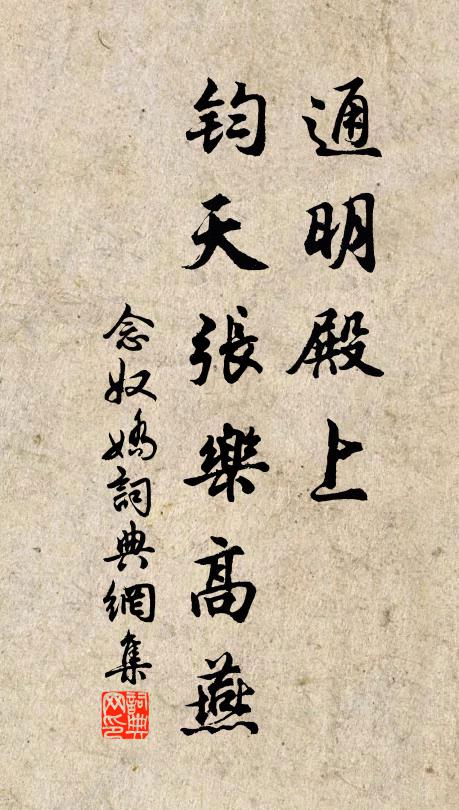 通明殿上
鈞天張樂高燕
念奴嬌詞典網集
詞典网印